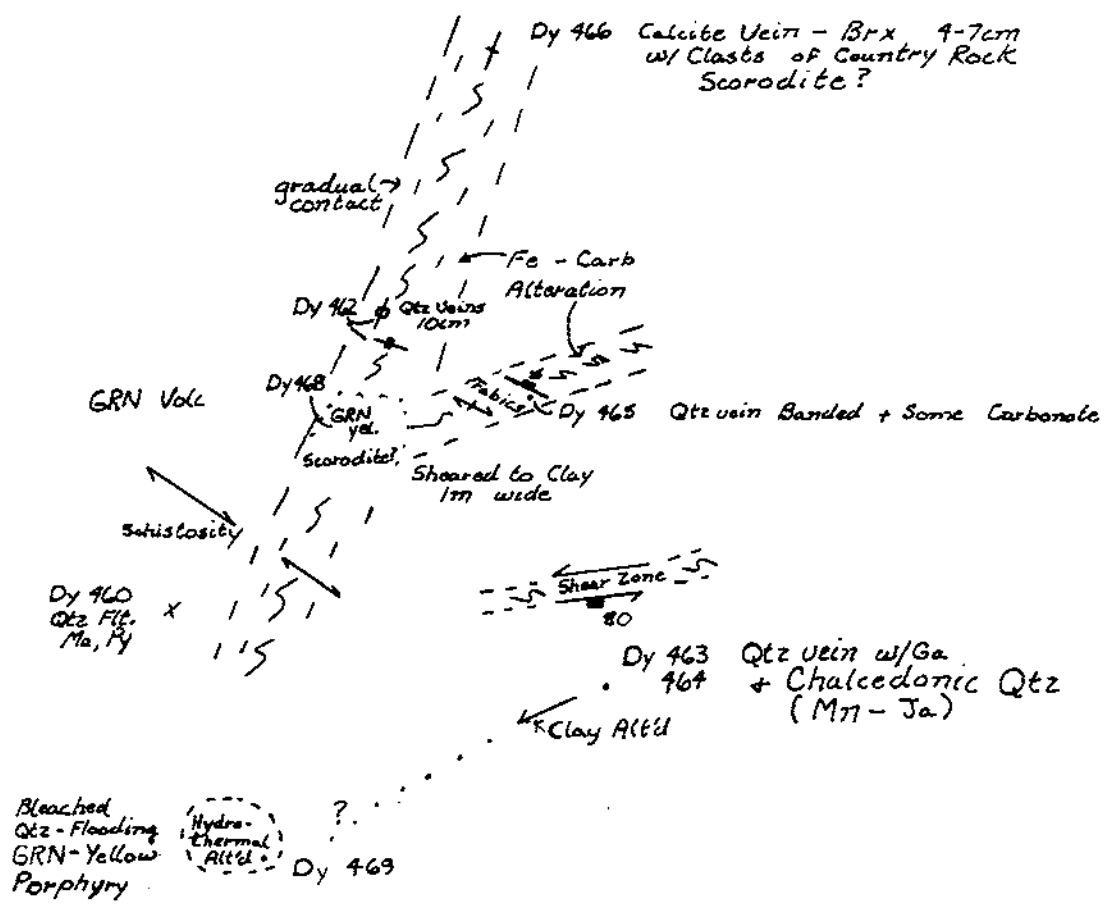 Dy 466 Calcite Vein - Brx 4-7cm
w/ Clasts of Country Rock
Scorodite?
gradual
contact
Fe - Carb
Alteration
Dy 462
Qtz Veins
10cm
Dy 468
GRN Volc
GRN
yel.
Scorodite?
Fabics
Dy 465 Qtz vein Banded + Some Carbonate
Sheared to Clay
1m wide
Schistosity
Shear Zone
80
Dy 460
Qtz Flt.
Ma, Py
Dy 463 Qtz vein w/Ga
464 + Chalcedonic Qtz
(Mn - Ja)
Clay Alt'd
?
Bleached
Qtz - Flooding
GRN - Yellow
Porphyry
Hydro-
thermal
Alt'd
Dy 469